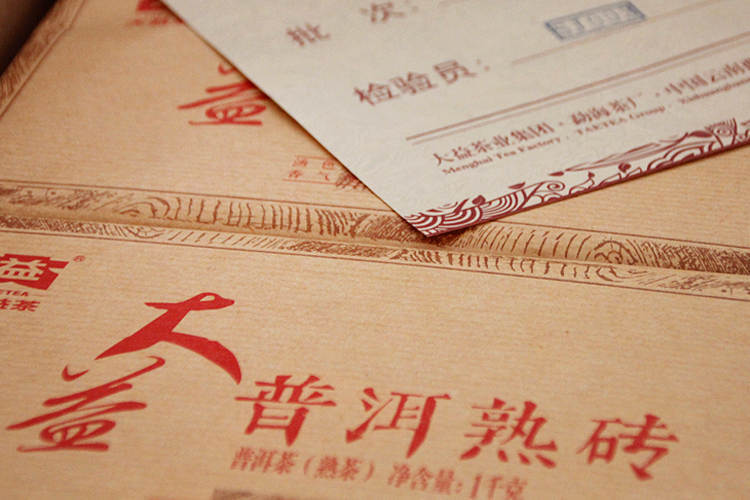 批 次：
检验员：
大益茶业集团·勐海茶厂·中国云南
Menghai Tea Factory . TAETEA Group .
益
汤色
香气
益®
TEA
益茶
大益
普洱熟砖
普洱茶（熟茶）净含量：1千克